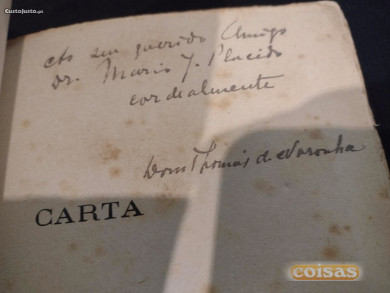 CustoJusto.pt
Ao seu querido Amigo
Dr. Mario J. Placido
cordealmente
Dom Thomás de Noronha
CARTA
coisas